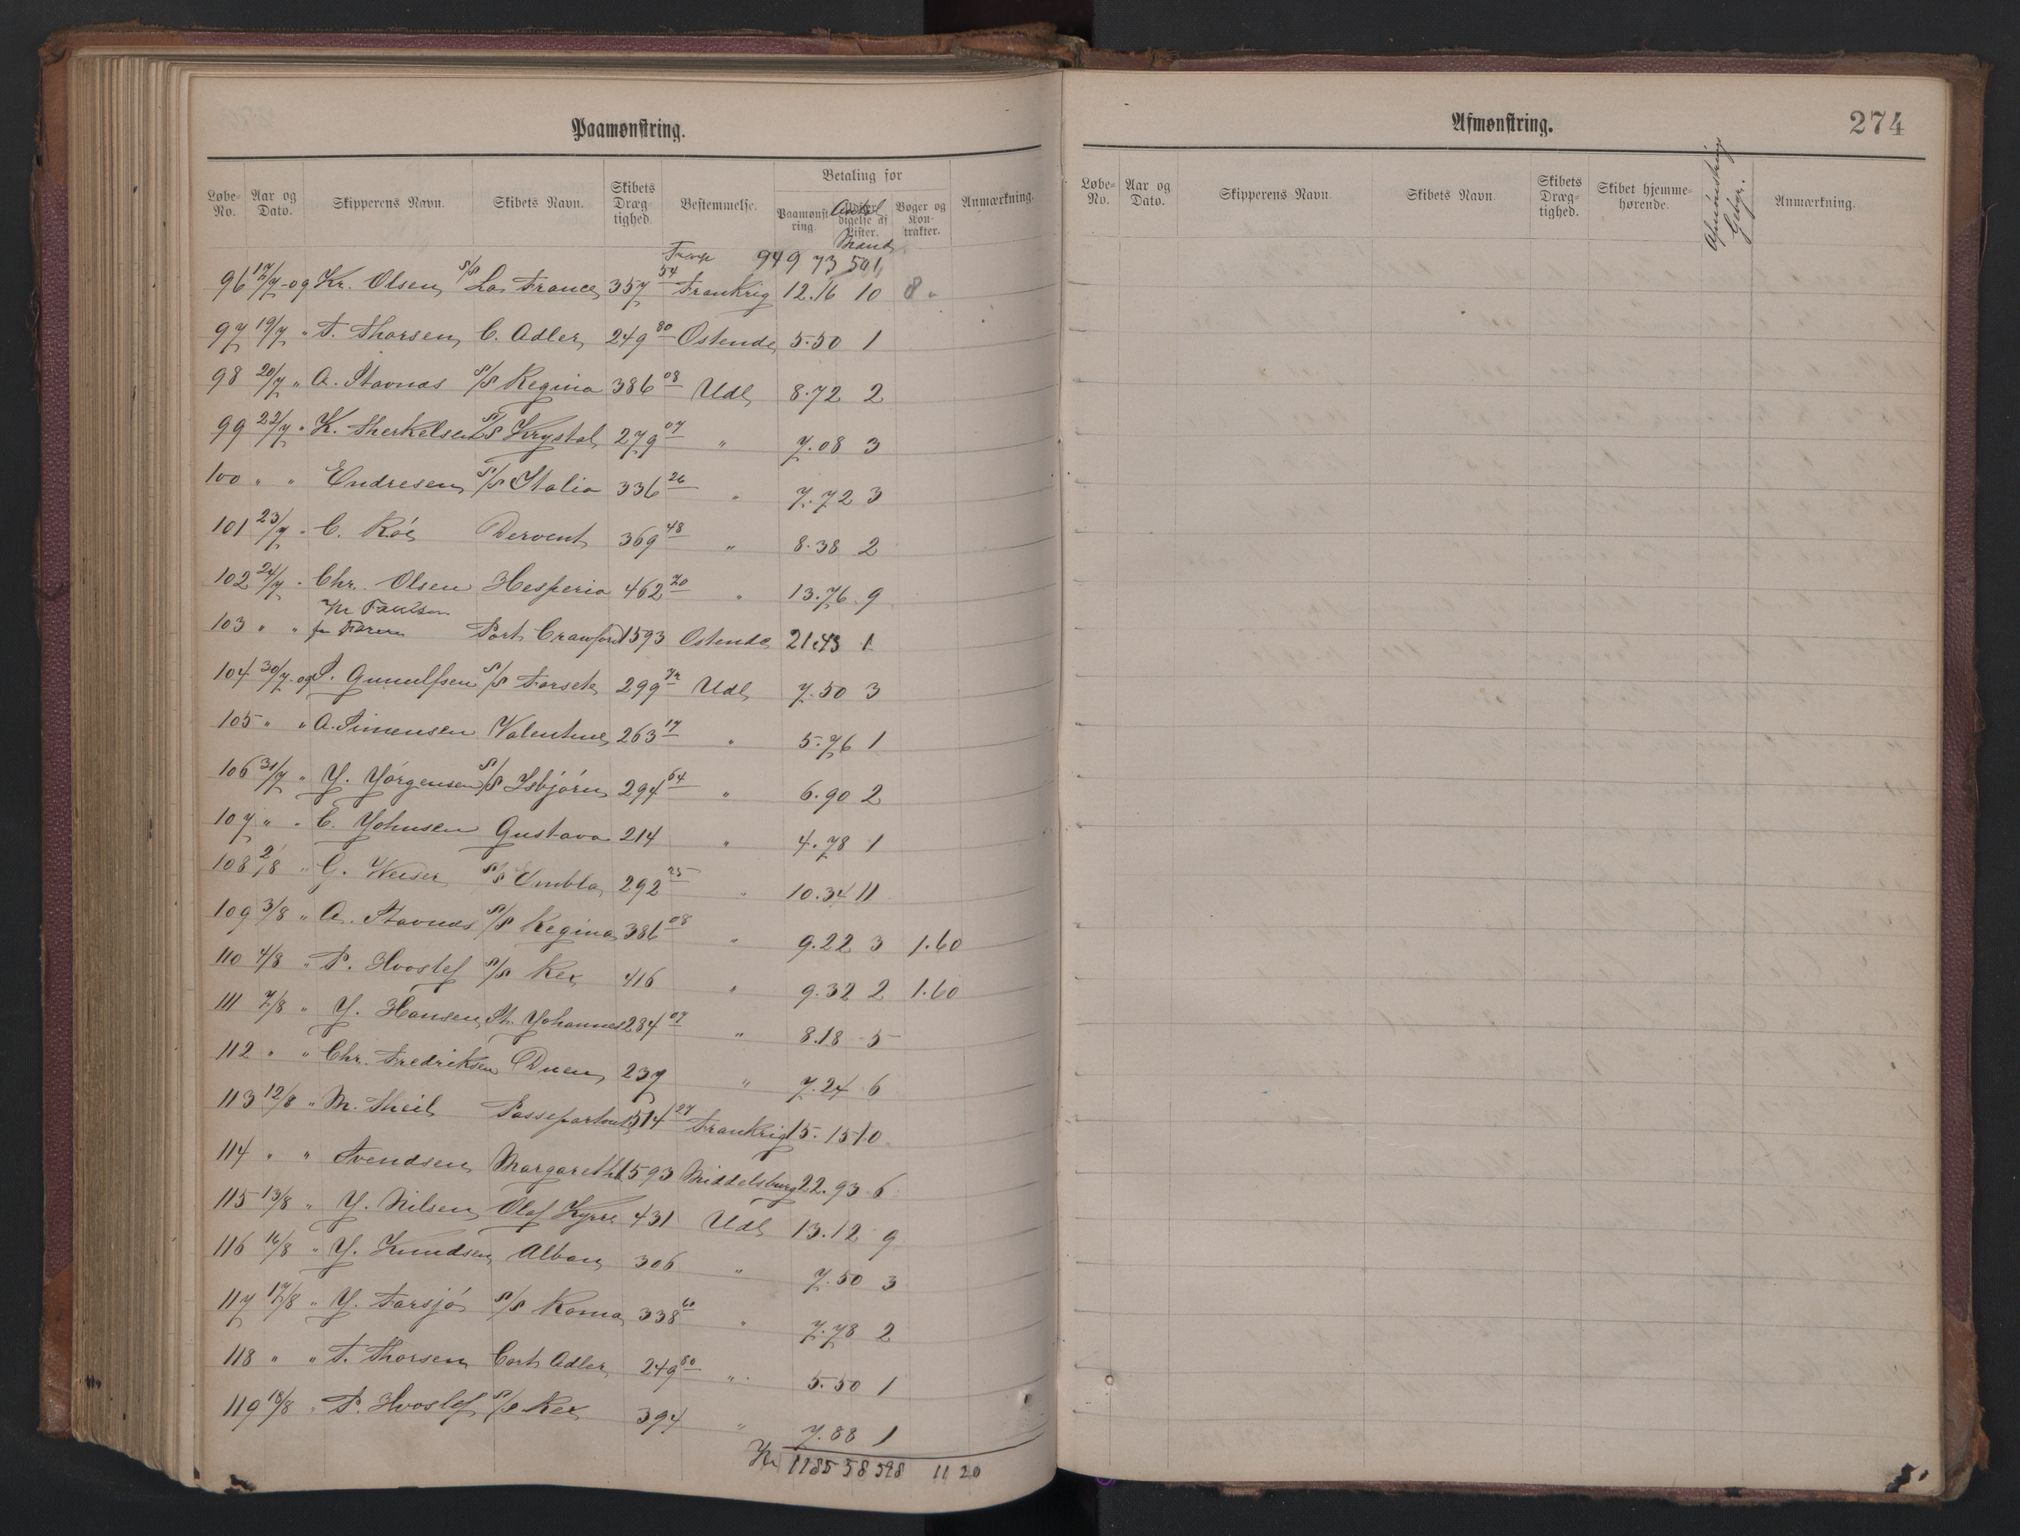 Paamønstring.
Løbe-No. Aar og Dato. Skipperens Navn. Skibets Navn. Skibets Drægtighed. Bestemmelse. Betaling for Paamønstring. Udfærdigelse af Lister. Antal Mand Bøger og Kontrakter. Anmærkning.
949 73 501
96 17/7 og Kr. Olsen S/S La France 357 54 Frankrig 12.16 10 8 "
97 19/7 " T. Thorsen C. Adler 249 80 Ostende 5.50 1
98 20/7 " A. Stavnas S/S Regina 386 08 Udl 8.72 2
99 22/7 " K. Therkelsen S/S Krystal 279 07 " 7.08 3
100 " " Endresen S/S Italia 336 26 " 7.72 3
101 23/7 " C. Röe Dervent 369 48 " 8.38 2
102 24/7 " Chr. Olsen Hesperia 462 70 " 13.76 9
103 " " Port Crawford 1593 Ostende 21.43 1
104 30/7 og P. Gunulfsen S/S Forsete 299 72 Udl 7.50 3
105 " " A. Simensen Valentine 263 17 " 5.76 1
106 31/7 " Y. Yörgensen S/S Isbjörn 294 64 " 6.90 2
107 " " C. Yohnsen Gustava 214 " 4.78 1
108 2/8 " G. Weiser S/S Embla 292 25 " 10.34 11
109 3/8 " A. Stavnas S/S Regina 386 08 " 9.22 3 1.60
110 4/8 " P. Hvoslef S/S Rex 416 " 9.32 2 1.60
111 7/8 " Y. Hansen St. Yohannes 284 07 " 8.18 5
112 " " Chr. Fredriksen Duen 237 " 7.24 6
113 12/8 " M. Theil Passepartout 514 27 Frankrig 15.15 10
114 " " Svendsen Margarethe 1593 Middelsburg 22.93 6
115 13/8 " Y. Nilsen Olaf Kyrre 431 Udl 13.12 9
116 16/8 " Y. Knudsen Alban 306 " 7.50 3
117 17/8 " Y. Farsjö S/S Roma 338 60 " 7.78 2
118 " " T. Thorsen Cort Adler 249 80 " 5.50 1
119 18/8 " P. Hvoslef S/S Rex 394 " 7.88 1
Kr 1185 58 598 11 20
Afmønstring.
274
Løbe-No. Aar og Dato. Skipperens Navn. Skibets Navn. Skibets Drægtighed. Skibet hjemmehørende. Afmönstrings Gebyr. Anmærkning.